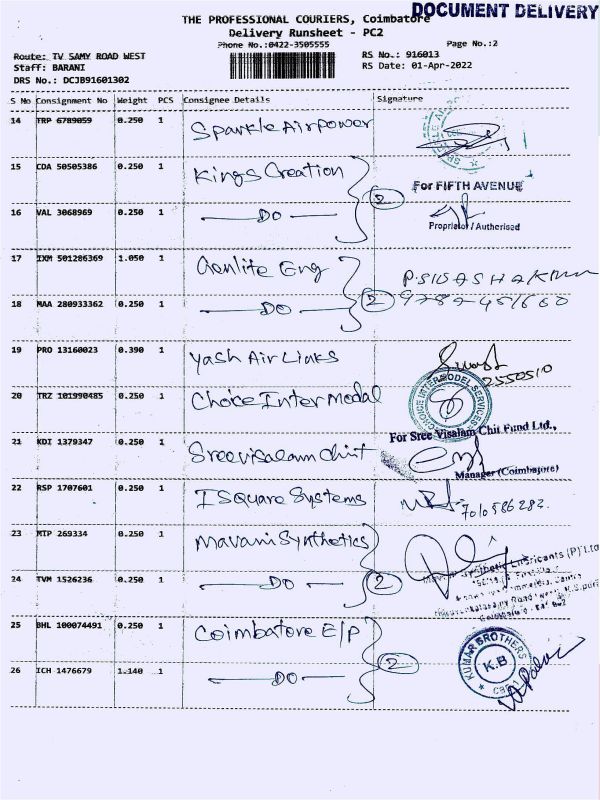 DOCUMENT DELIVERY
THE PROFESSIONAL COURIERS, Coimbatore
Delivery Runsheet - PC2
Phone No.:0422-3505555
Page No.:2
Route: TV SAMY ROAD WEST
RS No.: 916013
Staff: BARANI
RS Date: 01-Apr-2022
DRS No.: DCJB91601302
S No Consignment No Weight PCS Consignee Details Signature
14 TRP 6789059 0.250 1 Sparkle Airpower
15 CDA 50505386 0.250 1 Kings Creation
For FIFTH AVENUE
2
16 VAL 3068969 0.250 1 DO
Proprietor / Authorised
17 IXM 501286369 1.050 1 Eng
18 MAA 280933362 0.250 1 DO 2
19 PRO 13160023 0.390 1 Yash Air Links
2550510
20 TRZ 101990485 0.250 1 Choice Inter Modal
CHOICE INTERMODEL SERVICES
For Sree Visalam Chit Fund Ltd.,
21 KDI 1379347 0.250 1 Sreevisalam Chit
Manager (Coimbatore)
22 RSP 1707601 0.250 1 I Square Systems
7010586282
23 MTP 269334 0.250 1 Mavani Synthetics
Synthetic Lubricants (P) Ltd
24 TVM 1526236 0.250 1 DO 2
25 BHL 100074491 0.250 1 Coimbatore E/P
KUMAR BROTHERS
K.B
2
26 ICH 1476679 1.140 1 DO